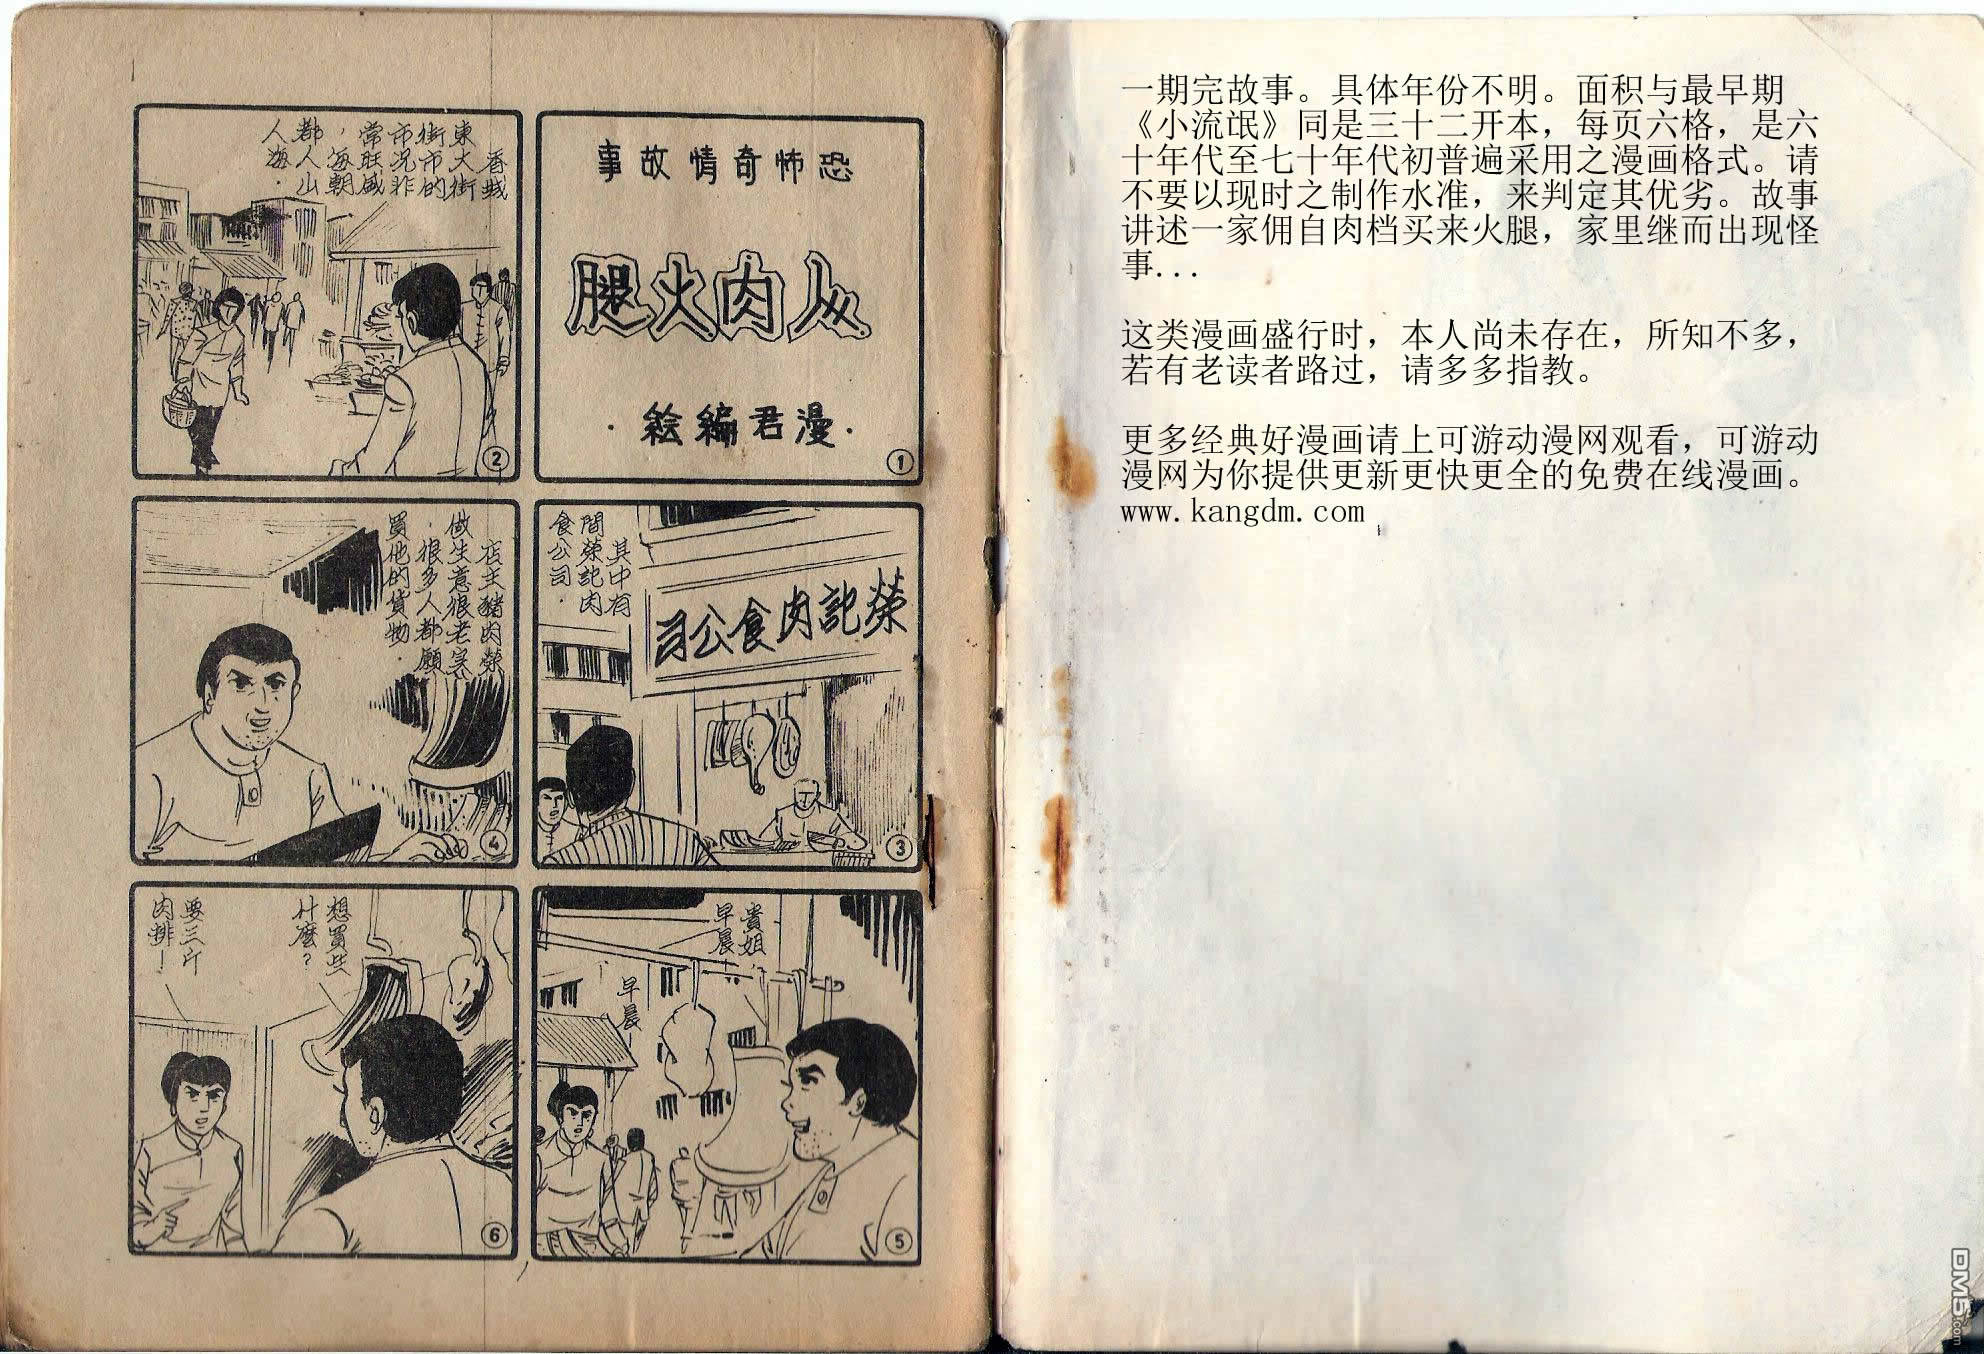 一期完故事。具体年份不明。面积与最早期
《小流氓》同是三十二开本，每页六格，是六
十年代至七十年代初普遍采用之漫画格式。请
不要以现时之制作水准，来判定其优劣。故事
讲述一家佣自肉档买来火腿，家里继而出现怪
事...
这类漫画盛行时，本人尚未存在，所知不多，
若有老读者路过，请多多指教。
更多经典好漫画请上可游动漫网观看，可游动
漫网为你提供更新更快更全的免费在线漫画。
www.kangdm.com
恐怖奇情故事
人肉火腿
·漫君編繪·
①
香城
東大街
街市的
市況非
常旺盛
，每朝
都人山
人海．
②
其中有
間榮記肉
食公司．
榮記肉食公司
③
店主豬肉榮
做生意很老实
．很多人都願
買他的貨物．
④
貴姐，
早晨
早晨！
⑤
想買些
什麽？
要三斤
肉排！
⑥
DM5.com